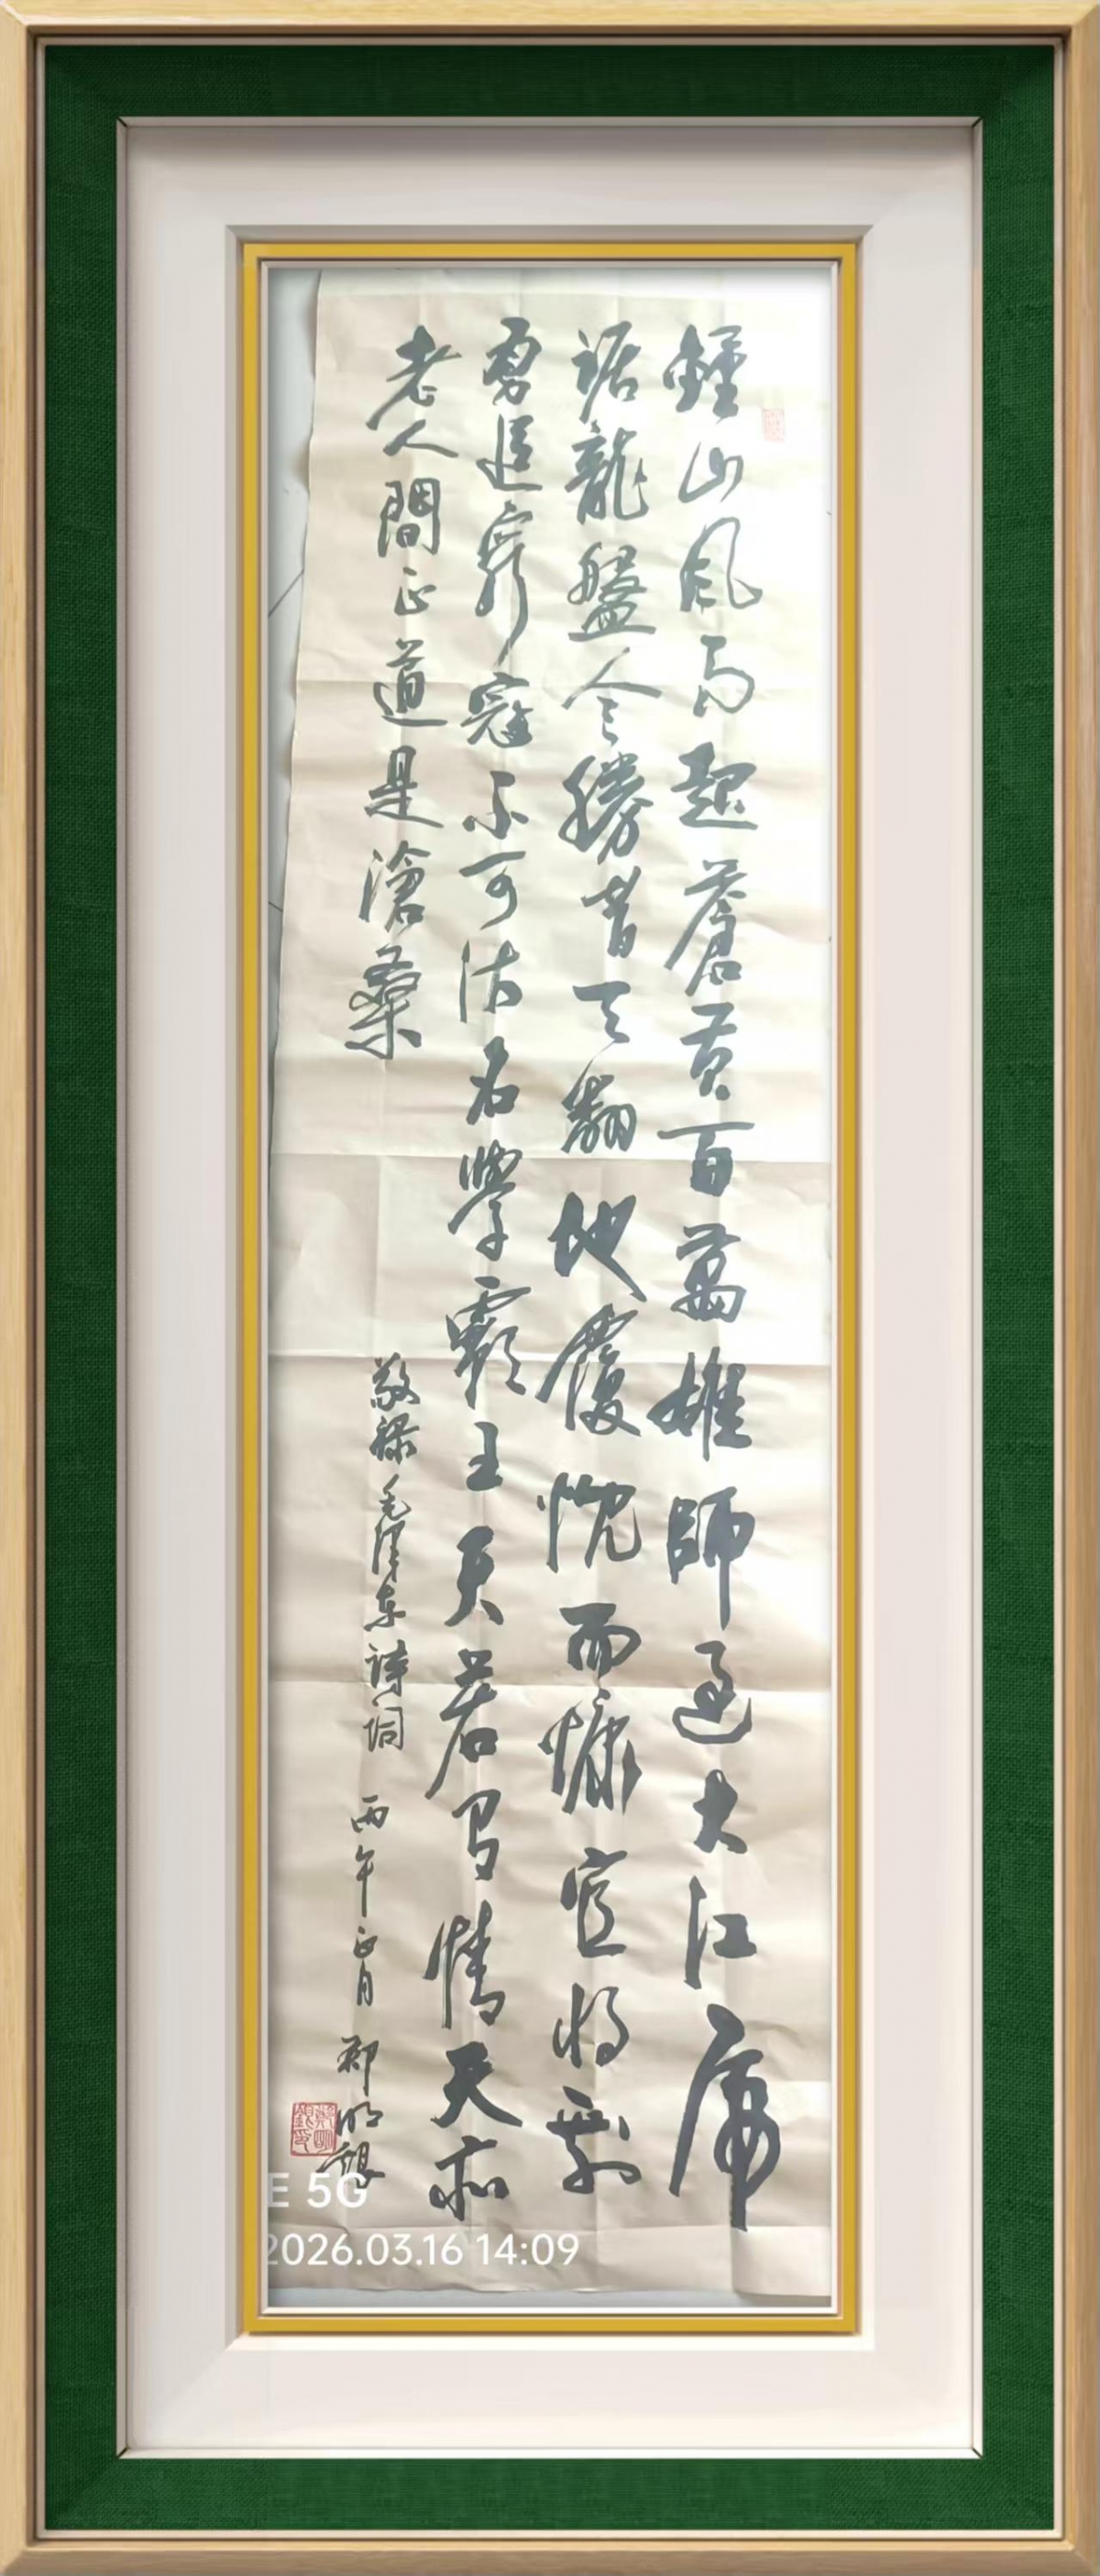 鍾山風雨起蒼黃百萬雄師過大江虎
踞龍盤今勝昔天翻地覆慨而慷宜將剩
勇追窮寇不可沽名學霸王天若有情天亦
老人間正道是滄桑
敬錄毛澤东詩詞 丙午正月 郑明銀
E 5G
2026.03.16 14:09